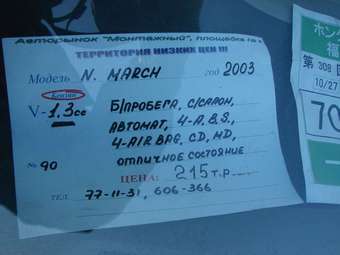 Авторынок "Монтажный", площадка
ТЕРРИТОРИЯ НИЗКИХ ЦЕН !!!
Модель N. MARCH год 2003
Бензин
V- 1,3 cc
Б/ПРОБЕГА, С/САЛОН,
АВТОМАТ, 4-A.B.S,
4-AIR BAG, CD, MD,
ОТЛИЧНОЕ СОСТОЯНИЕ
№ 90
ЦЕНА: 215 т.р
ТЕЛ 77-11-31, 606-366
ホン
福
第 308 回
10/27
70